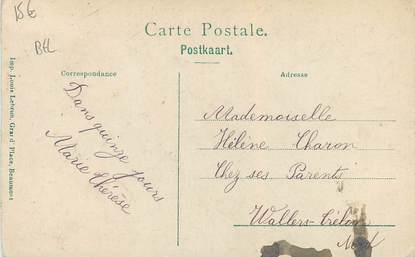 15€
BEL
Carte Postale.
Postkaart.
Correspondance
Adresse
Imp. Louis Lebrun, Grand'Place, Beaumont
Dans quinze jours
Marie thérèse
Mademoiselle
Hélène Charon
Chez ses Parents
Wallers-Trélon
Nord